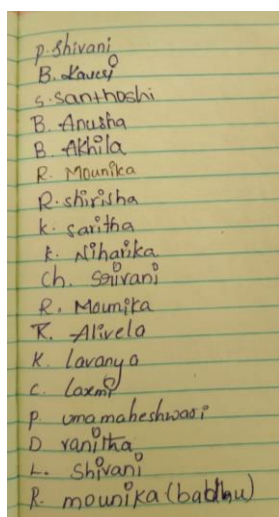 P. Shivani
B. Kaveri
S. Santhoshi
B. Anusha
B. Akhila
R. Mounika
R. Shirisha
K. Saritha
K. Niharika
Ch. Srivani
R. Mounika
K. Alivela
K. lavanya
C. laxmi
P umamaheshwari
D vanitha
L. Shivani
R. mounika (babbhu)